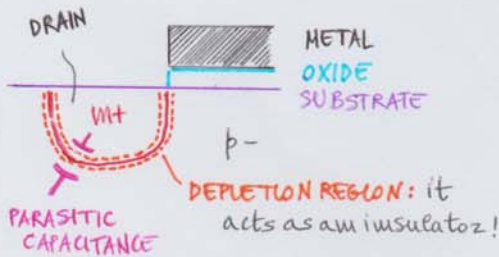 DRAIN
METAL
OXIDE
SUBSTRATE
m+
p-
DEPLETION REGION: it
acts as am imsulator!
PARASITIC
CAPACITANCE